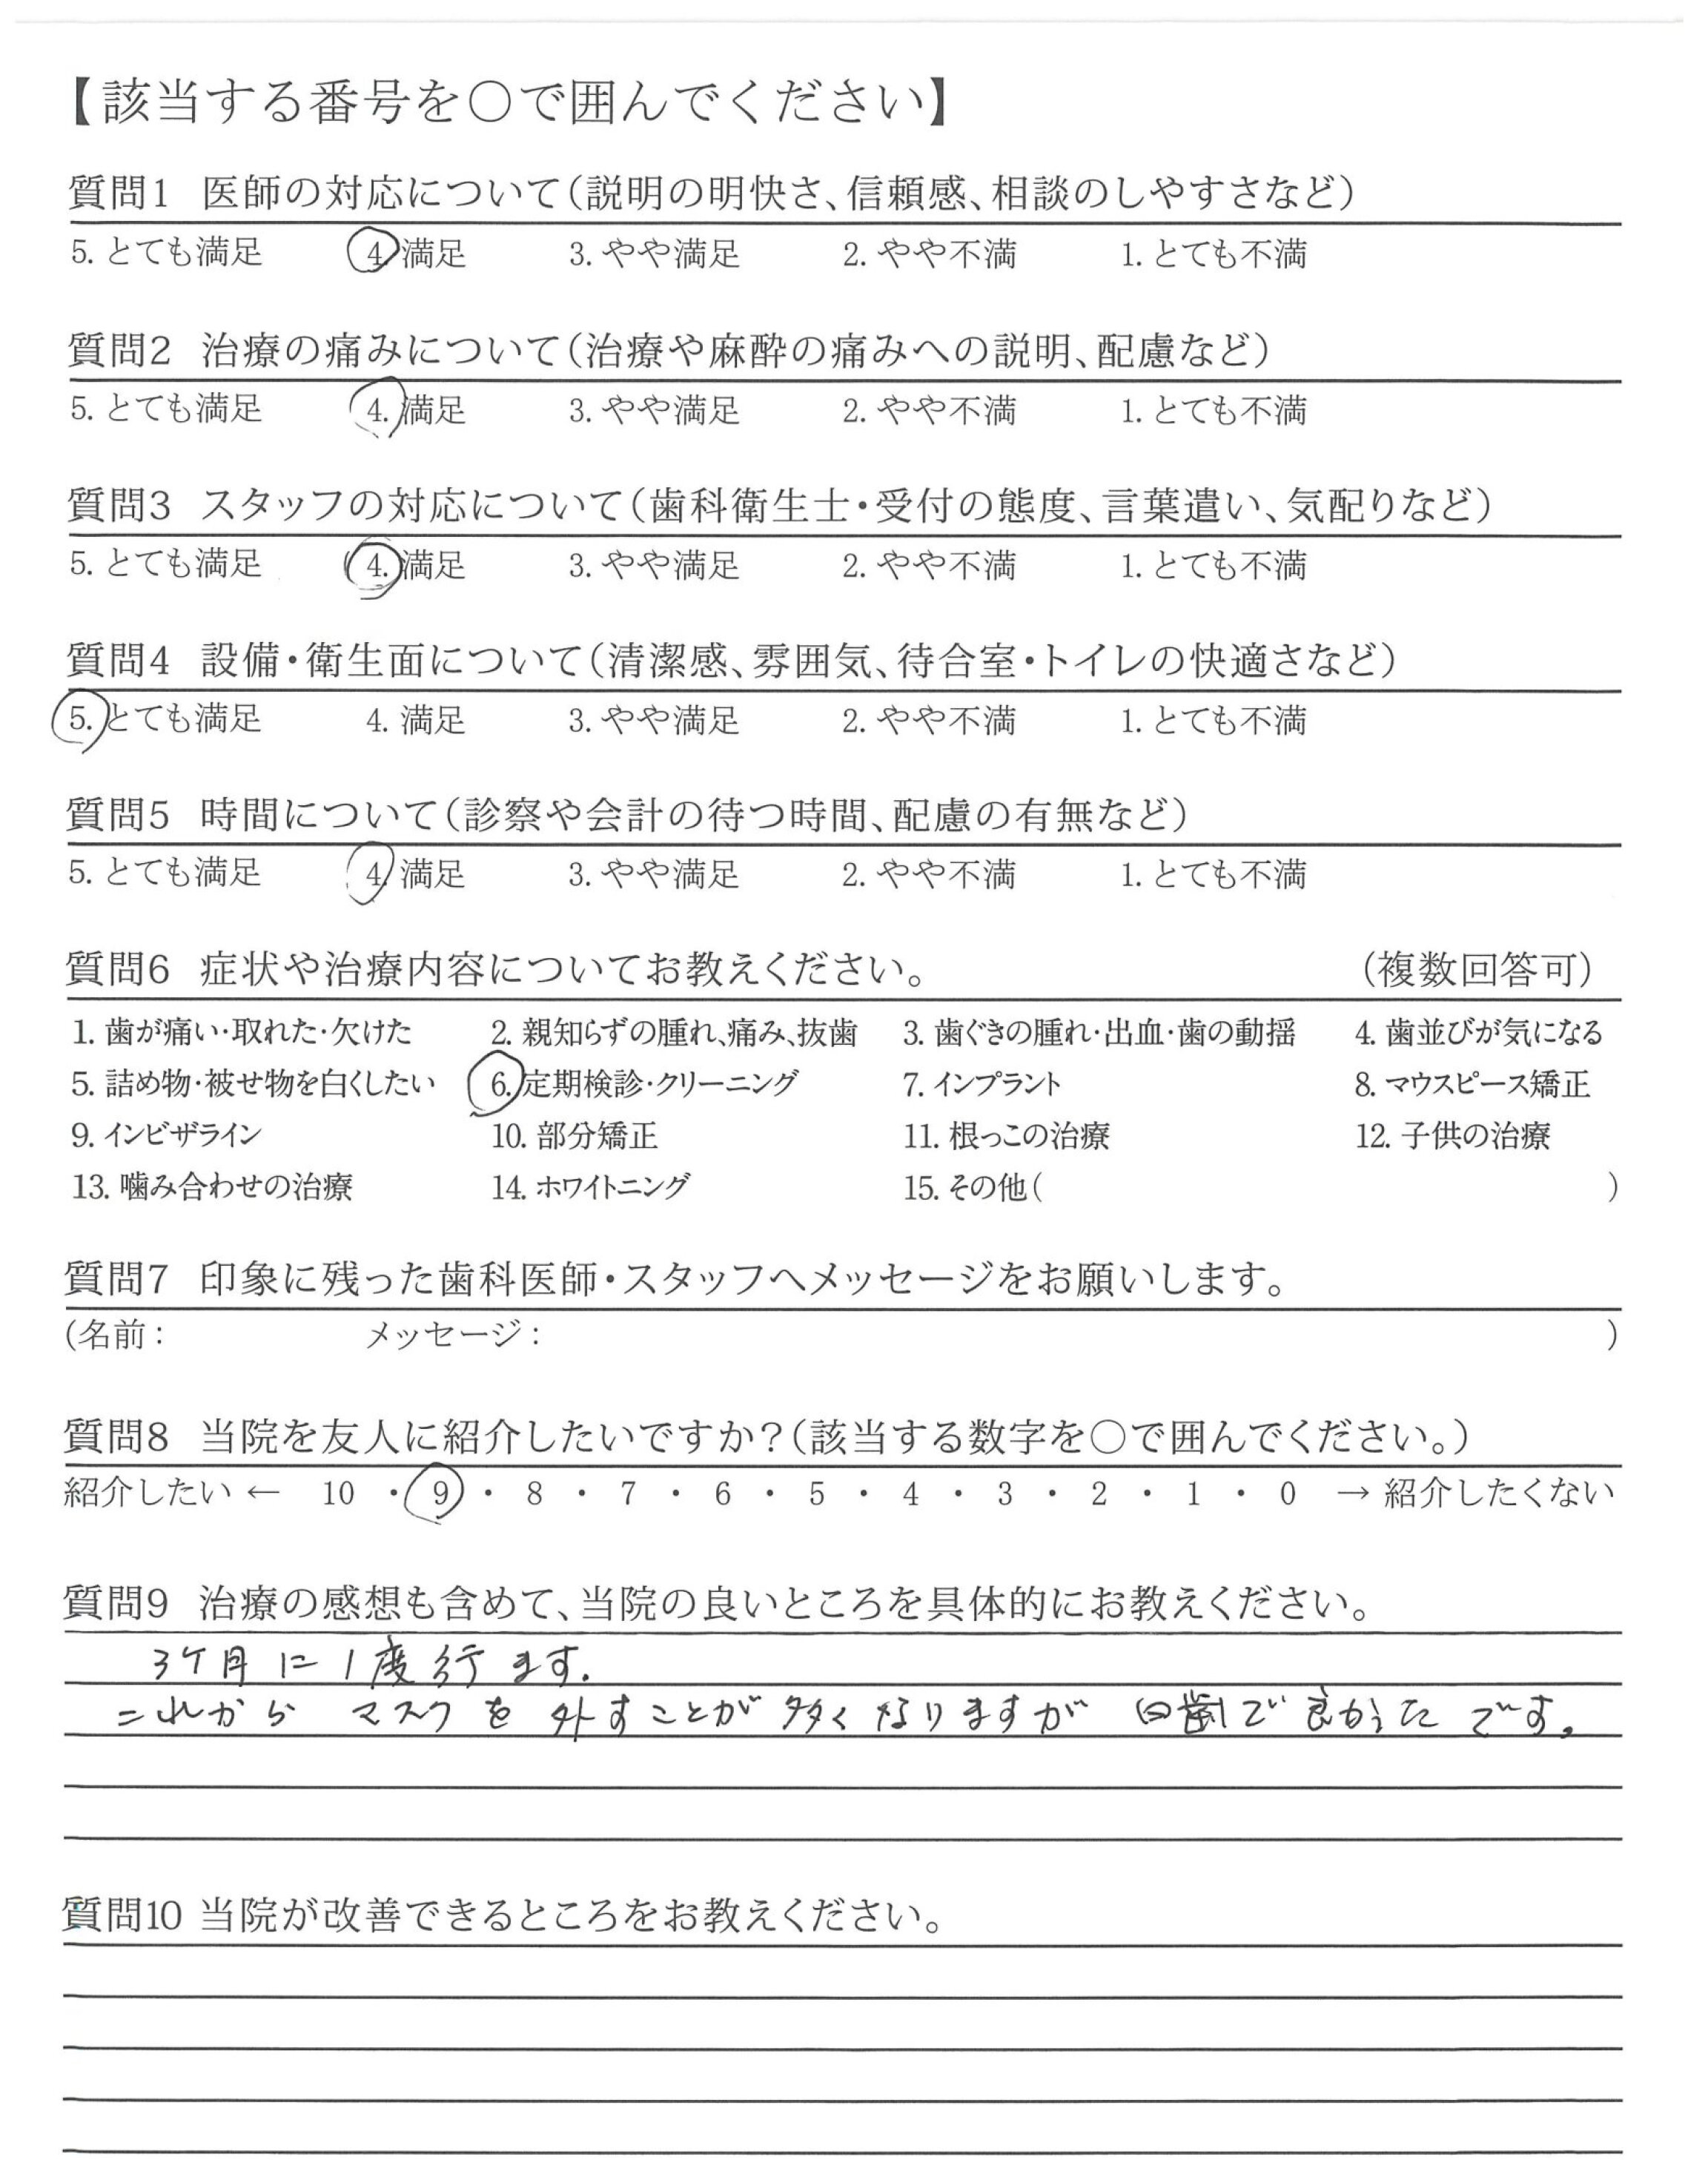 【該当する番号を○で囲んでください】
質問1 医師の対応について(説明の明快さ、信頼感、相談のしやすさなど)
5. とても満足 4. 満足 3. やや満足 2. やや不満 1. とても不満
質問2 治療の痛みについて(治療や麻酔の痛みへの説明、配慮など)
5. とても満足 4. 満足 3. やや満足 2. やや不満 1. とても不満
質問3 スタッフの対応について(歯科衛生士・受付の態度、言葉遣い、気配りなど)
5. とても満足 4. 満足 3. やや満足 2. やや不満 1. とても不満
質問4 設備・衛生面について(清潔感、雰囲気、待合室・トイレの快適さなど)
5. とても満足 4. 満足 3. やや満足 2. やや不満 1. とても不満
質問5 時間について(診察や会計の待つ時間、配慮の有無など)
5. とても満足 4. 満足 3. やや満足 2. やや不満 1. とても不満
質問6 症状や治療内容についてお教えください。 (複数回答可)
1. 歯が痛い・取れた・欠けた 2. 親知らずの腫れ、痛み、抜歯 3. 歯ぐきの腫れ・出血・歯の動揺 4. 歯並びが気になる
5. 詰め物・被せ物を白くしたい 6. 定期検診・クリーニング 7. インプラント 8. マウスピース矯正
9. インビザライン 10. 部分矯正 11. 根っこの治療 12. 子供の治療
13. 噛み合わせの治療 14. ホワイトニング 15. その他( )
質問7 印象に残った歯科医師・スタッフへメッセージをお願いします。
(名前: メッセージ: )
質問8 当院を友人に紹介したいですか?(該当する数字を○で囲んでください。)
紹介したい ← 10 ・ 9 ・ 8 ・ 7 ・ 6 ・ 5 ・ 4 ・ 3 ・ 2 ・ 1 ・ 0 → 紹介したくない
質問9 治療の感想も含めて、当院の良いところを具体的にお教えください。
3ケ月に1度行ます.
これから マスクを外すことが多くなりますが 白歯で良かったです。
質問10 当院が改善できるところをお教えください。